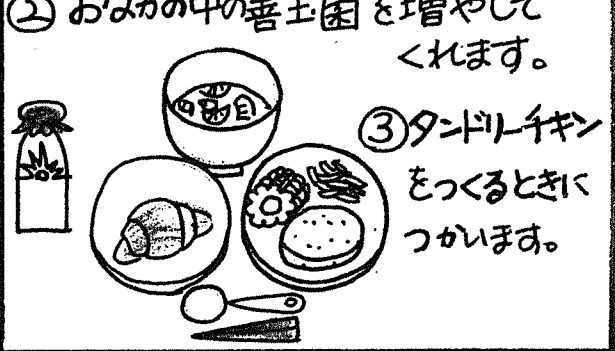 ② おなかの中の善玉菌を増やして
くれます。
③タンドリーチキン
をつくるときに
つかいます。